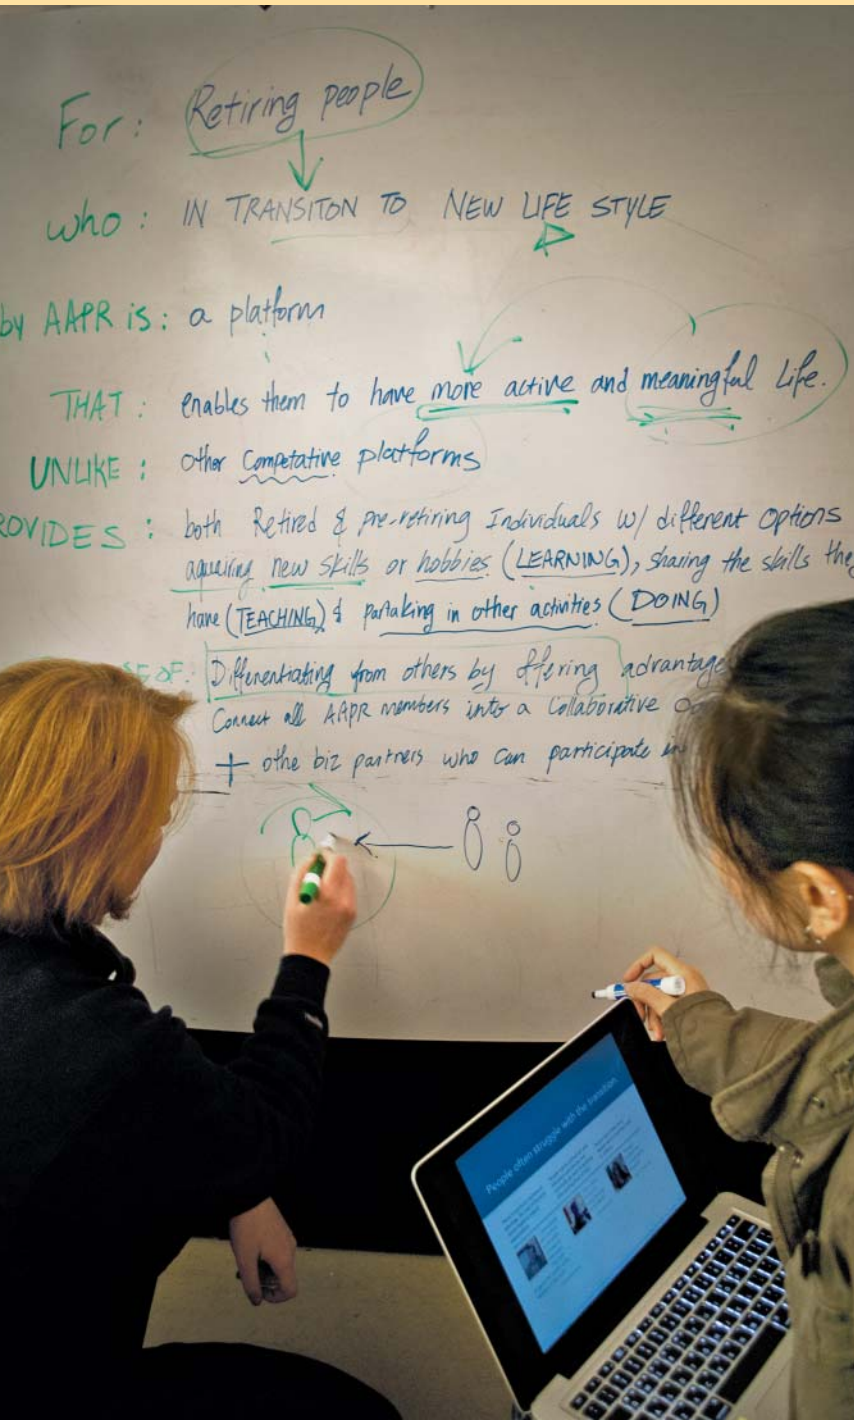 For: Retiring people
who: IN TRANSITON TO NEW LIFE STYLE
by AAPR is: a platform
THAT: enables them to have more active and meaningful Life.
UNLIKE: other Competative platforms
ROVIDES: both Retired & pre-retiring Individuals w/ different options
aquairing new skills or hobbies (LEARNING), sharing the skills they
have (TEACHING) & partaking in other activities (DOING)
OF: Differentiating from others by offering advantage
Connect all AAPR members into a Collaborative
+ othe biz partners who can participate in
People often struggle with the transition.